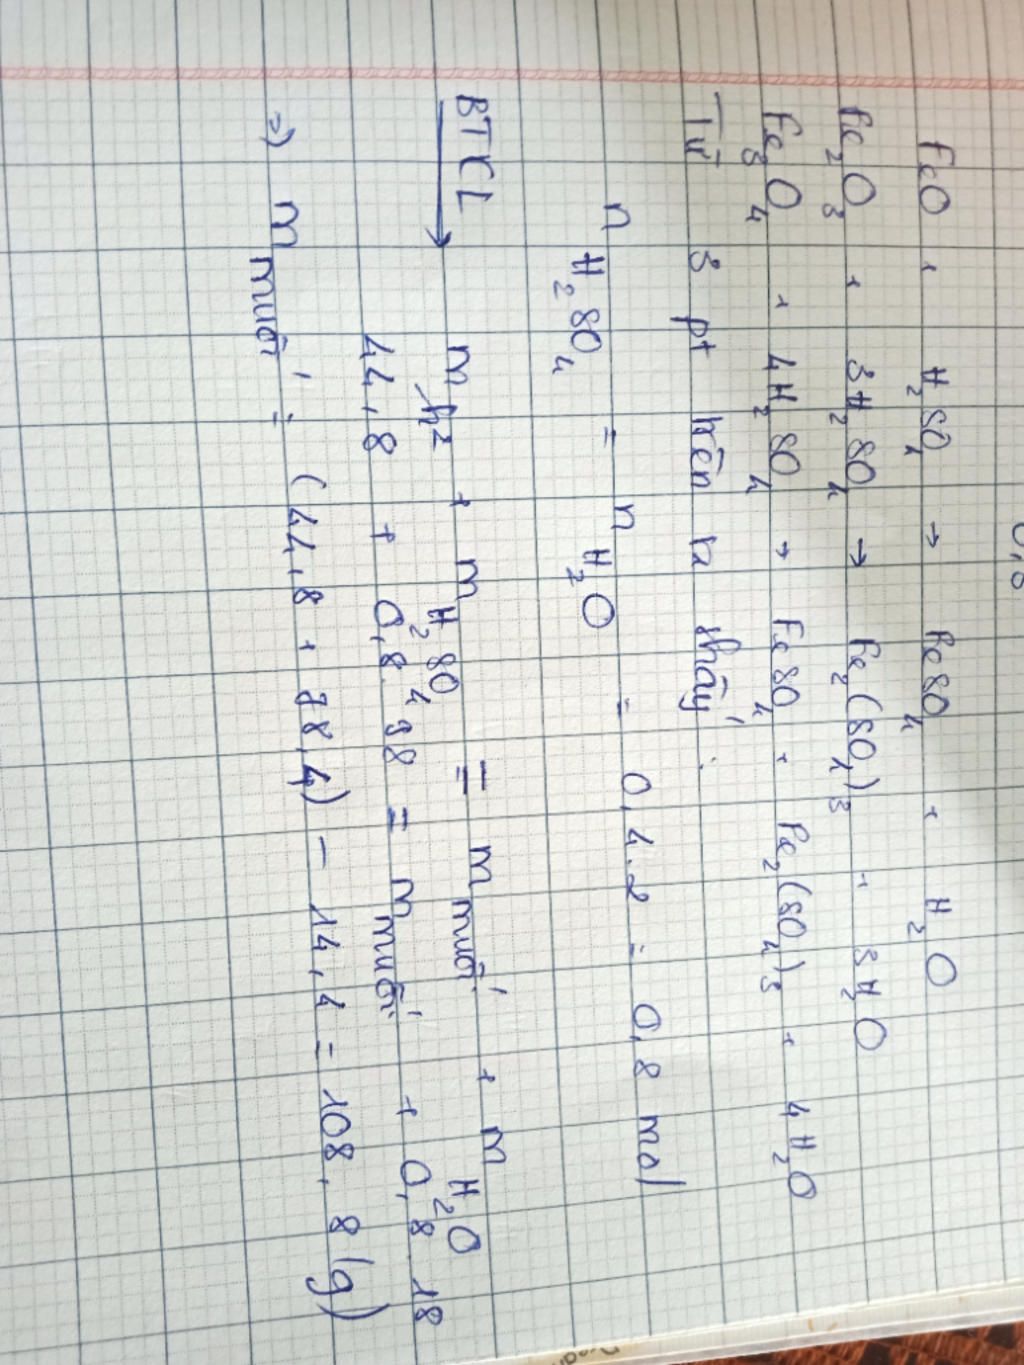 0,8
FeO + H₂SO₄ → FeSO₄ + H₂O
Fe₂O₃ + 3H₂SO₄ → Fe₂(SO₄)₃ + 3H₂O
Fe₃O₄ + 4H₂SO₄ → FeSO₄ + Fe₂(SO₄)₃ + 4H₂O
Từ 3 pt trên ta thấy:
n H₂SO₄ = n H₂O = 0,4.2 = 0,8 mol
BTKL → m h² + m H₂SO₄ = m muối + m H₂O
44,8 + 0,8.98 = m muối + 0,8.18
=> m muối = (44,8 + 78,4) - 14,4 = 108,8 (g)